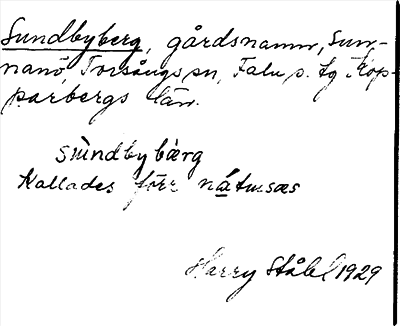 Sundbyberg, gårdsnamn, Sun-
nanö, Torsångs sn, Falu s. tg Kop-
parbergs län.
sùndbybærg
Kallades förr nátmsæs
Harry Ståhl 1929